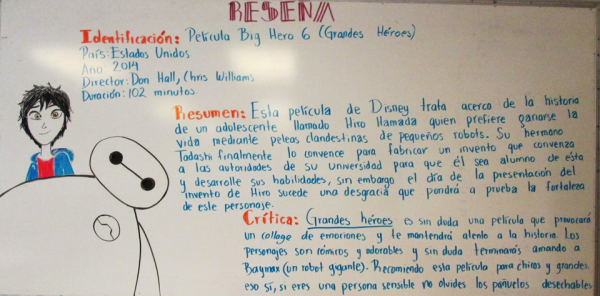 RESEÑA
Identificación: Película Big Hero 6 (Grandes Héroes)
País: Estados Unidos
Año 2014
Director: Don Hall, Chris Williams
Duración: 102 minutos.
Resumen: Esta película de Disney trata acerca de la historia
de un adolescente llamado Hiro llamada quien prefiere ganarse la
vida mediante peleas clandestinas de pequeños robots. Su hermano
Tadashi finalmente lo convence para fabricar un invento que convenza
a las autoridades de su Universidad para que él sea alumno de ésta
y desarrolle sus habilidades, sin embargo el día de la presentación del
invento de Hiro sucede una desgracia que pondrá a prueba la fortaleza
de este personaje.
Crítica: Grandes héroes es sin duda una película que provocará
un collage de emociones y te mantendrá atento a la historia. Los
personajes son cómicos y adorables y sin duda terminarás amando a
Baymax (un robot gigante). Recomiendo esta película para chicos y grandes,
eso sí, si eres una persona sensible no olvides los pañuelos desechables